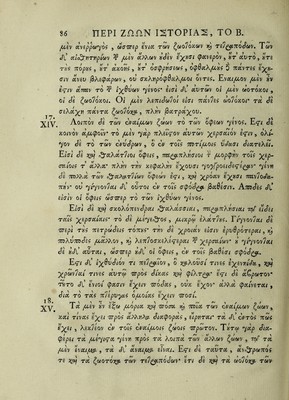 86 ΠΕΡΙ ΖΩΩΝ ΙΣΤΟΡΙΑΣ, ΤΟ Β.
μὲν ἀνερρωγὸς, ὥσπερ ἔνια τῶν ζωοτόκων καὶ τετραπόδων. Τῶν
δ᾽ αἰσθητηρίων τῶν μὲν ἄλλων οὐδὲν ἔχουσι φανερὸν, οὔτ᾽ αὐτὸ, οὔτε
τὸν πόρον, οὔτ᾽ ἀκοῆς, οὔτ᾽ ὀσφρήσεως, ὀφθαλμοὺς δὲ πάντες ἔχου-
σιν ἄνευ βλεφάρων, οὐ σκληρόφθαλμοι ὄντες. Ἔναιμον μὲν ἓν
ἐστιν ἅπαν τὸ τῶν ἰχθύων γένος· εἰσὶ δ᾽ αὐτῶν οἱ μὲν ὠοτόκοι,
οἱ δὲ ζωοτόκοι. Οἱ μὲν λεπιδωτοὶ εἰσὶ πάντες ὠοτόκοι· τὰ δὲ
σελάχη πάντα ζωοτόκα, πλὴν βατράχου.
17.
XIV. Λοιπὸν δὲ τῶν ἐναίμων ζώων τὸ τῶν ὄφεων γένος. Ἔστι δὲ
κοινὸν ἀμφοῖν· τὸ μὲν γὰρ πλεῖστον αὐτῶν χερσαῖόν ἐστιν, ὀλί-
γον δὲ τὸ τῶν ἐνύδρων, ὃ ἐν τοῖς ποτίμοις ὕδασι διατελεῖ.
Εἰσὶ δὲ καὶ θαλάττιοι ὄφεις, παραπλήσιοι τὴν μορφὴν τοῖς χερ-
σαίοις τἆλλα· πλὴν τὴν κεφαλὴν ἔχουσι γογγροειδεστέραν· γένη
δὲ πολλὰ τῶν θαλαττίων ὄφεών ἐστι, καὶ χρόαν ἔχουσι παντοδα-
πήν· οὐ γίγνονται δ᾽ οὗτοι ἐν τοῖς σφόδρα βαθέσιν. Ἄποδες δ᾽
εἰσὶν οἱ ὄφεις ὥσπερ τὸ τῶν ἰχθύων γένος.
Εἰσὶ δὲ καὶ σκολόπενδραι θαλάσσιαι, παραπλήσιαι τὸ εἶδος
ταῖς χερσαίαις· τὸ δὲ μέγεθος, μικρῷ ἐλάττους. Γίγνονται δὲ
περὶ τοὺς πετρώδεις τόπους· τὴν δὲ χροιὰν εἰσὶν ἐρυθρότεραι, καὶ
πολύποδες μᾶλλον, καὶ λεπτοσκελέστεραι τῶν χερσαίων· οὐ γίγνονται
δὲ οὐδ᾽ αὗται, ὥσπερ οὐδ᾽ οἱ ὄφεις, ἐν τοῖς βαθέσι σφόδρα.
Ἔστι δ᾽ ἰχθύδιόν τι πετραῖον, ὃ καλοῦσί τινες ἐχενηΐδα, καὶ
χρῶνταί τινες αὐτῷ πρὸς δίκας καὶ φίλτρα· ἔστι δὲ ἄβρωτον·
τοῦτο δ᾽ ἔνιοί φασιν ἔχειν πόδας, οὐκ ἔχον· ἀλλὰ φαίνεται,
διὰ τὸ τὰς πτέρυγας ὁμοίας ἔχειν ποσί.
18.
XV. Τὰ μὲν οὖν ἔξω μόρια καὶ πόσα καὶ ποῖα τῶν ἐναίμων ζώων,
καὶ τίνας ἔχει πρὸς ἄλληλα διαφορὰς, εἴρηται· τὰ δ᾽ ἐντὸς πῶς
ἔχει, λεκτέον ἐν τοῖς ἐναίμοις ζώοις πρῶτον. Τούτῳ γὰρ δια-
φέρει τὰ μέγιστα γένη πρὸς τὰ λοιπὰ τῶν ἄλλων ζώων, τῷ τὰ
μὲν ἔναιμα, τὰ δ᾽ ἄναιμα εἶναι. Ἔστι δὲ ταῦτα, ἄνθρωπός
τε καὶ τὰ ζωοτόκα τῶν τετραπόδων· ἔτι δὲ καὶ τὰ ὠοτόκα τῶν